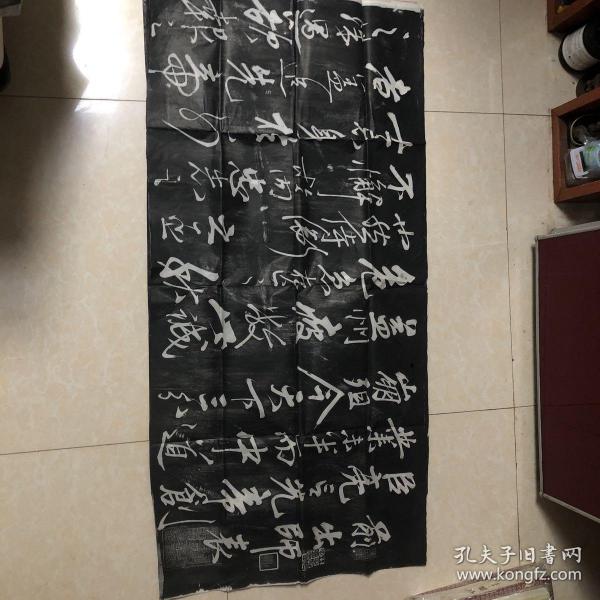 前出師表
臣亮言先帝創
業未半而中道
崩殂今天下三分
益州疲敝此誠
危急存亡之秋
也然侍衛之臣
不懈於內忠志
士忘身於外
者蓋追先帝
之殊遇欲報
孔夫子旧书网
www.kongfz.com